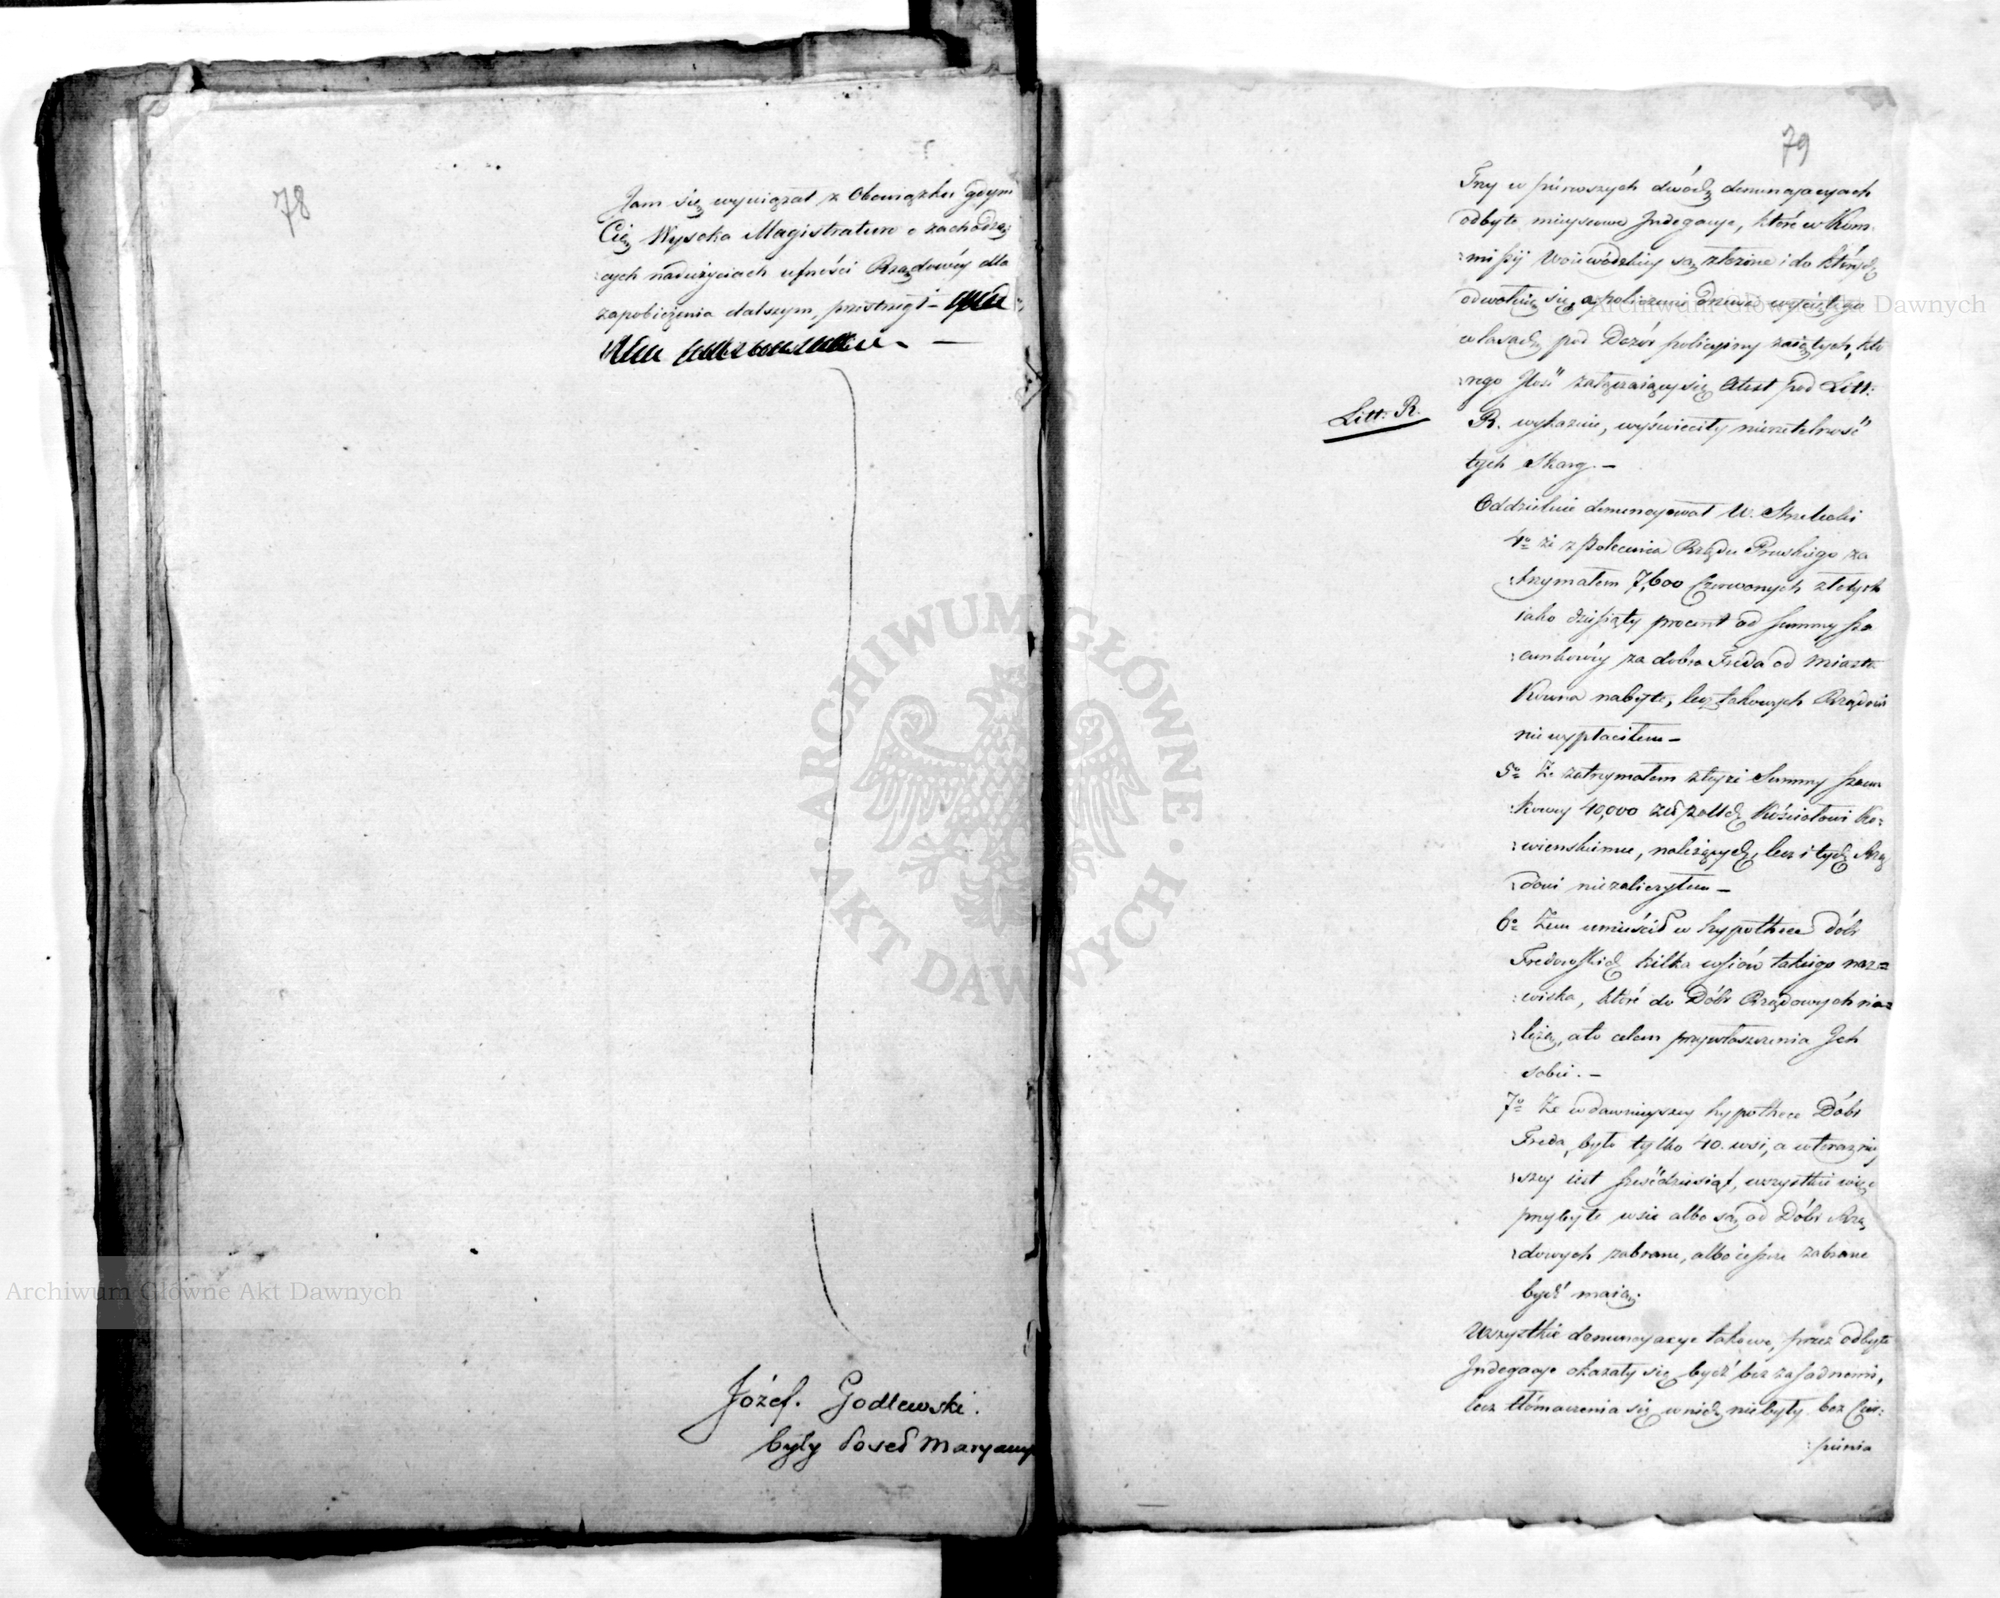 78
Jam się wywiązał z Obowiązku gdym
Cię Wysoka Magistraturo o zachodzą
cych nadużyciach ufności Rządowéy dla
zapobieżenia dalszym, przestrzegł —
Józef. Godlewski.
były Poseł Maryamp
79
Trzy w pierwszych dwóch denuncjacyach
odbyte mieyscowe Indegacye, które w Kom
missyi Woiewódzkiey są złożone i do których
odwołuię się, a policzenie drzewa wyciętego
w lasach pod Dozór policyiny zaiętych, któ
rego Ilość załączaiący się Attest pod Litt:
Litt: R.
R. wykazuie, wyświeciły nierzetelność
tych Skarg. —
Oddzielnie denuncyował W. Strzelecki
4o że z polecenia Rządu Pruskiego za
trzymałem 7,600 Czerwonych złotych
iako dziesiąty procent od summy sza
cunkowéy za dobra Freda od Miasta
Kowna nabyte, lecz takowych Rządowi
nie wypłaciłem —
5o Że zatrzymałem z teyże Summy szacun
kowey 40,000 Zł. pols. Kościołowi Ko:
wienskiemu, należących, lecz i tych Rzą
dowi niezaliczyłem —
6o Żem umieścił w hypothece dóbr
Fredowskich kilka wsiów takiego naz=
wiska, które do Dóbr Rządowych na=
leżą, a to celem przywłaszczenia Ich
sobie. —
7o Że w dawnieyszey hypothece Dóbr
Freda, było tylko 40. wsi, a w teraźniey
szey iest sześćdziesiąt, wszystkie więc
przybyłe wsie albo są od Dóbr Rzą
dowych zabrane, albo ieszcze zabrane
bydź maią.
Wszystkie denuncyacye takowe, przez odbyte
Indegacye okazały się bydź bezzasadnemi,
lecz tłómaczenia się w nich niebyły bez Cier:
pienia
Archiwum Główne Akt Dawnych
Archiwum Główne Akt Dawnych
ARCHIWUM GŁÓWNE
AKT DAWNYCH